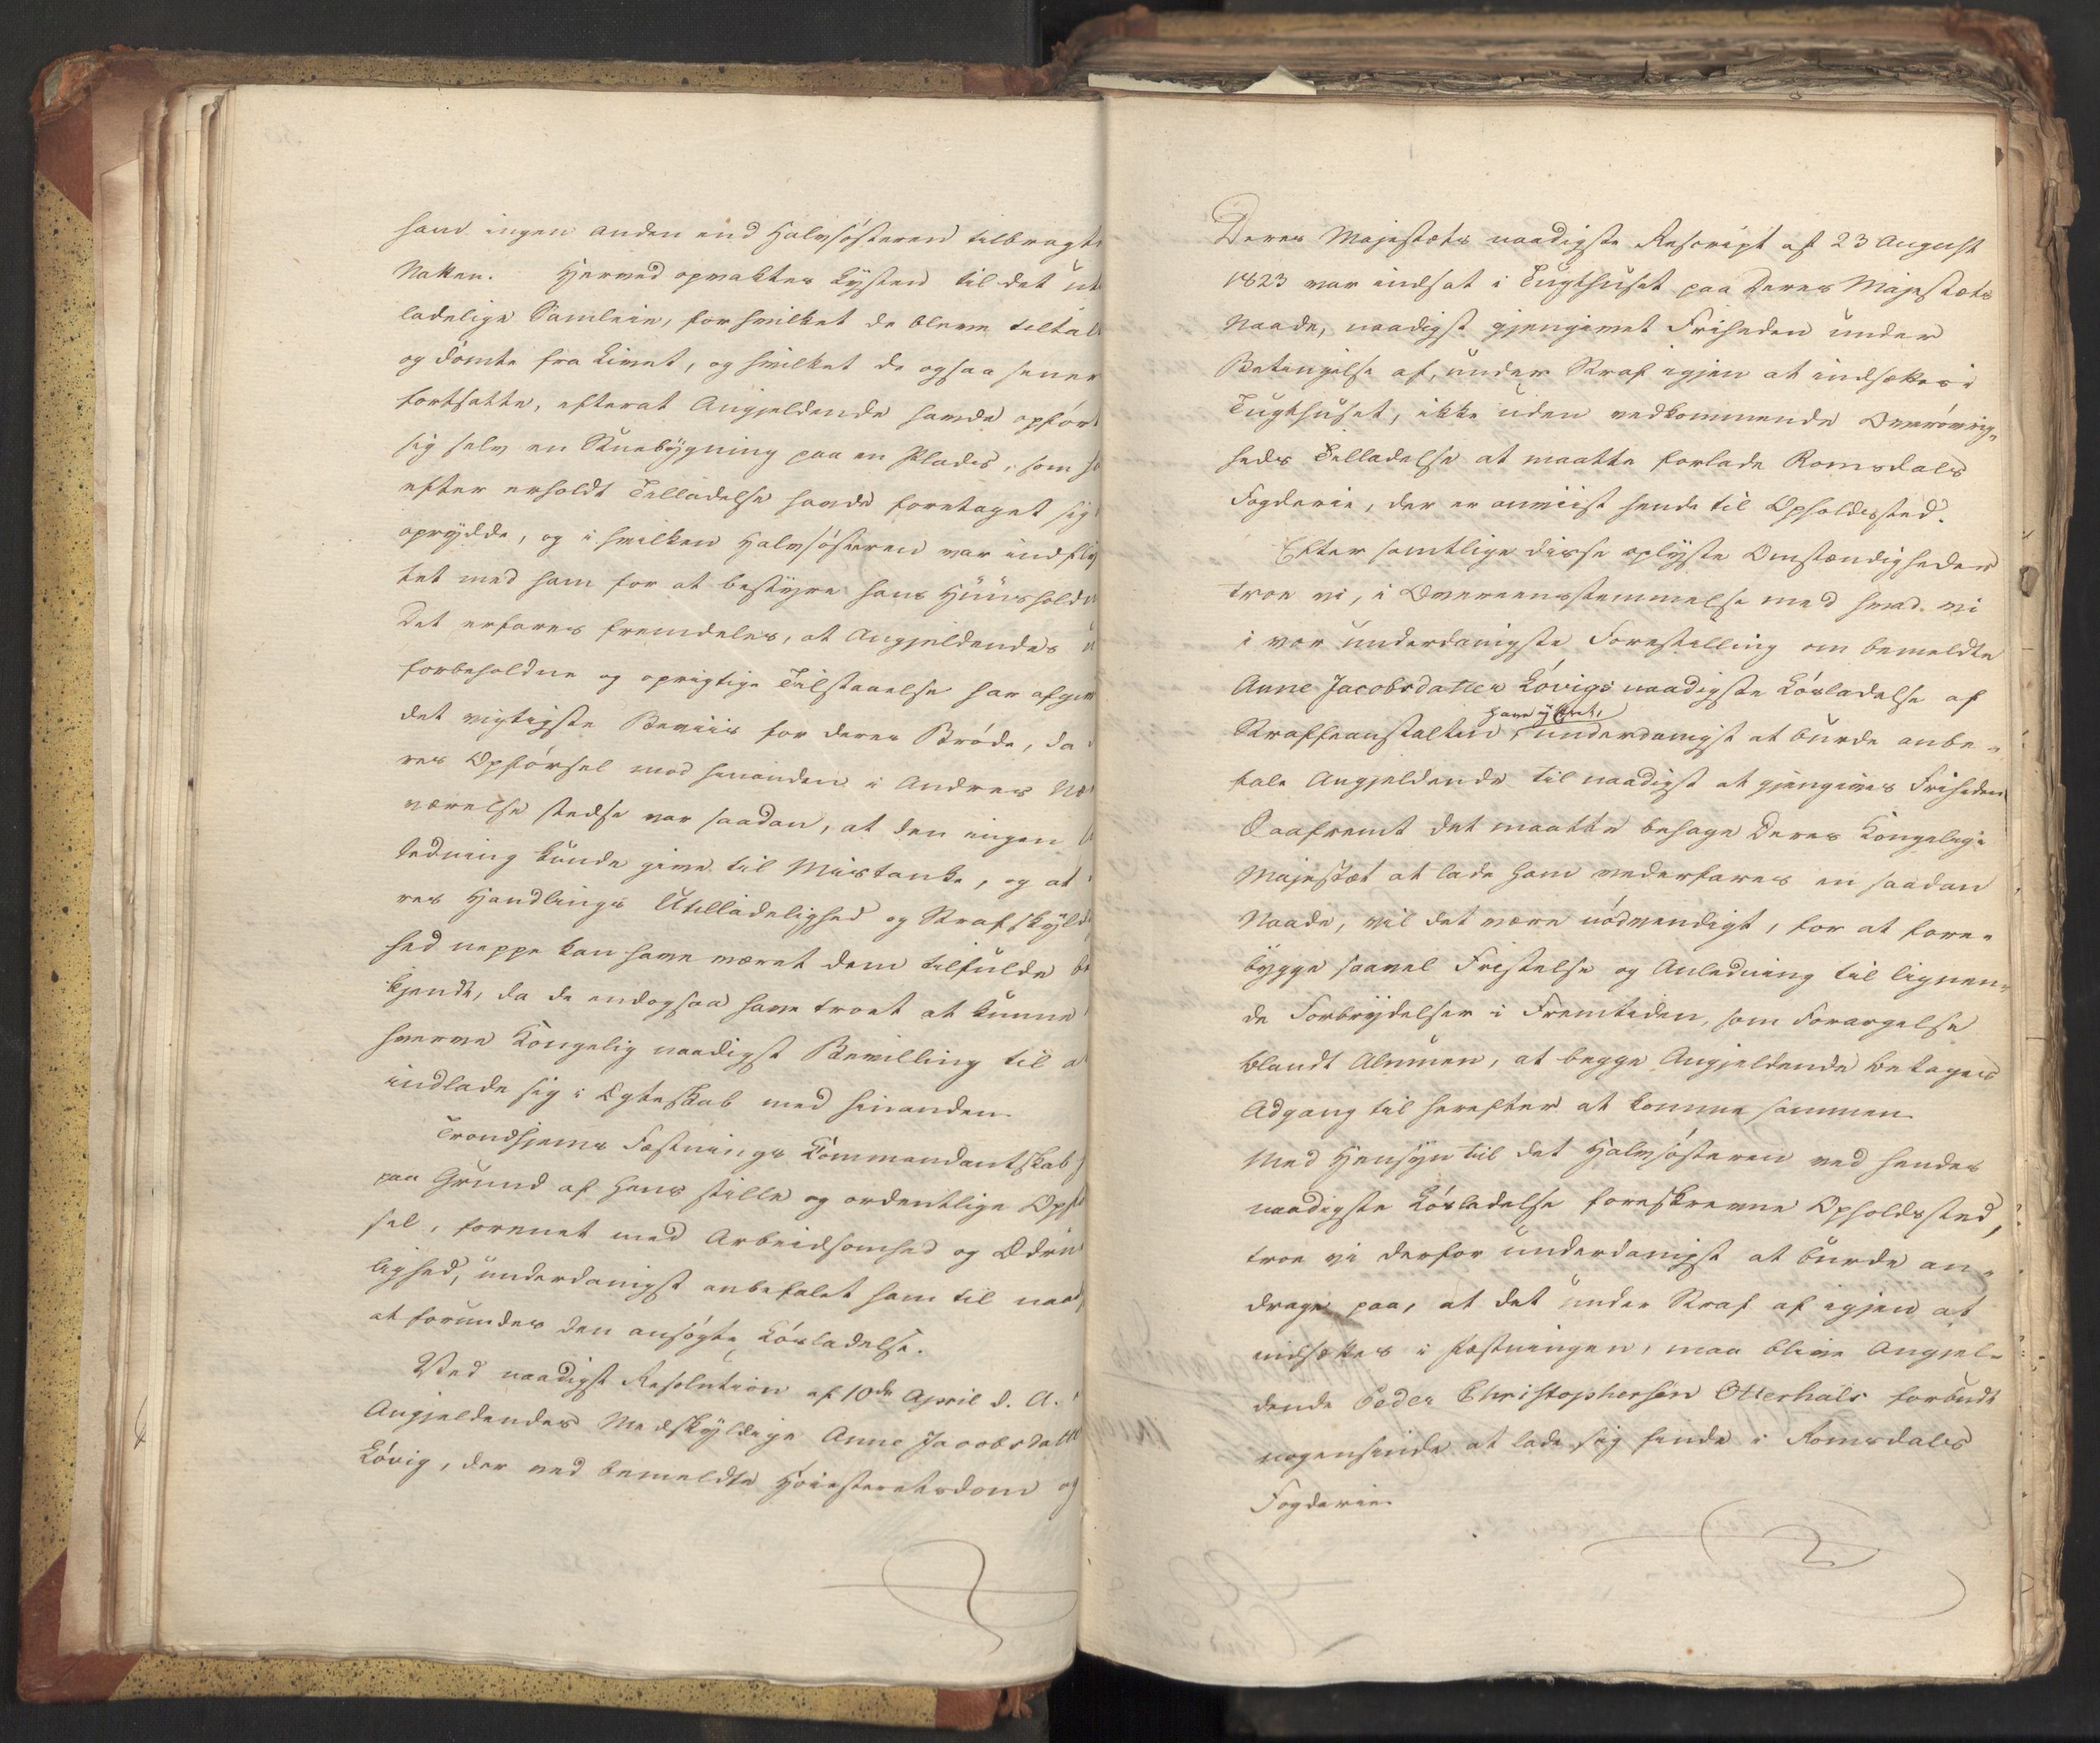 ham ingen anden end Halvsøsteren tilbragte
Natten. Herved opvaktes Lysten til det ut
ladelige Samleie, for hvilket de bleve tiltalt
og dömte fra Livet, og hvilket de ogsaa sener
fortsatte, efterat Angjeldende havde opført
sig selv en Stuebygning paa en Plads, som ha
efter erholdt Tilladelse havde foretaget sig
oprydde, og i hvilken Halvsøsteren var indflyt
tet med ham for at bestyre hans Huusholdn
Det erfares fremdeles, at Angjeldendes u
forbeholdne og oprigtige Tilstaaelse har afgivet
det vigtigste Beviis for deres Brøde, da
res Opførsel mod hinanden i Andres Nær
værelse stedse var saadan, at den ingen
ledning kunde give til Mistanke, og at
res Handlings Utilladelighed og Strafskyldig
hed neppe kan have været dem tilfulde be
kjendt, da de endogsaa have troet at kunne
hverve Kongelig naadigst Bevilling til a
indlade sig i Egteskab med hinanden.
Trondhjems Fæstnings Commandantskab h
paa Grund af hans stille og ordentlige Opf
sel, forenet med Arbeidsomhed og Ædru
lighed, underdanigst anbefalet ham til naad
at forundes den ansøgte Løsladelse.
Ved naadigst Resolution af 10de April d. A.
Angjeldendes Medskyldige Anne Jacobsdatter
Løvig, der ved bemeldte Høiesteretsdom og
Deres Majestæts naadigste Rescript af 23 August
1823 var indsat i Tugthuset paa Deres Majestæts
Naade, naadigst gjengivet Friheden under
Betingelse af, under Straf igjen at indsættes i
Tugthuset, ikke uden vedkommende Overøvrig-
heds Tilladelse at maatte forlade Romsdals
Fogderie, der er anviist hende til Opholdssted.
Efter samtlige disse oplyste Omstændigheder
troe vi, i Overeensstemmelse med hvad vi
i vor underdanigste Forestilling om bemeldte
Anne Jacobsdatter Løvigs naadigste Løsladelse af
have yttret,
Straffeanstalten, underdanigst at burde anbe-
fale Angjeldende til naadigst at gjengives Friheden
Saafremt det maatte behage Deres Kongelige
Majestæt at lade ham vederfares en saadan
Naade, vil det være nødvendigt, for at fore-
bygge saavel Fristelse og Anledning til lignen-
de Forbrydelser i Fremtiden, som Forargelse
blandt Almuen, at begge Angjeldende betages
Adgang til herefter at komme sammen.
Med Hensyn til det Halvsøsteren ved hendes
naadigste Løsladelse foreskrevne Opholdssted,
troe vi derfor underdanigst at burde an-
drage paa, at det under Straf af igjen at
indsættes i Fæstningen, maa blive Angjel-
dende Peder Christophersen Otterhals forbudt
nogensinde at lade sig finde i Romsdals
Fogderie.